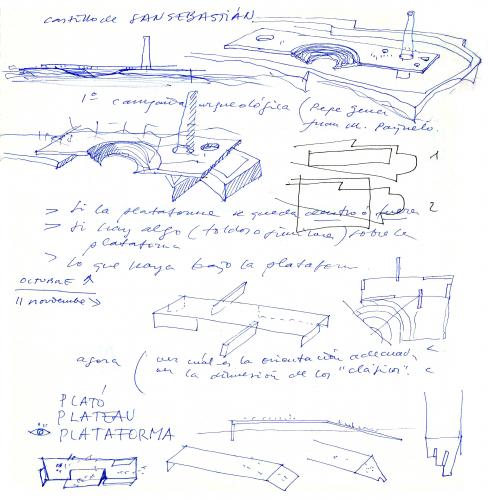 castillo de SAN SEBASTIÁN
1ª campaña arqueológica (Pepe Gener
Juan M. Pajuelo.
1
2
> Si la plataforma se queda dentro ó fuera
> Si hay algo (toldos o similares) sobre la
plataforma
> Lo que haya bajo la plataforma.
OCTUBRE
11 noviembre >
agora (ver cuál es la orientación adecuada
ver la dimensión de los "clásicos".
PLATÓ
PLATEAU
PLATAFORMA